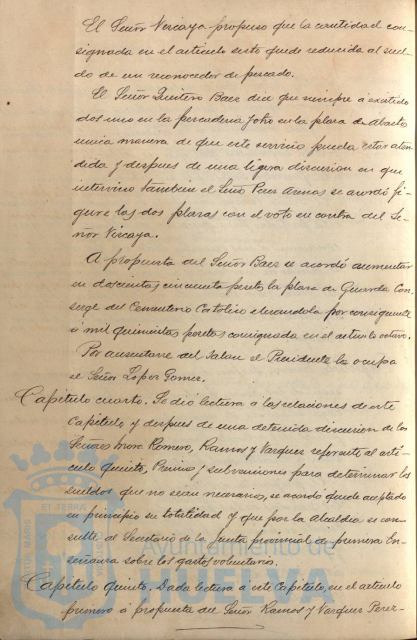 El Señor Vizcaya propuso que la cantidad con-
signada en el artículo sexto quede reducida al suel-
do de un reconocedor de pescado.
El Señor Quintero Baez dice que siempre á existido
dos uno en la pescadería y otro en la plaza de Abasto
unica manera de que este servicio pueda estar aten
dido y despues de una ligera discusion en que
intervino tambien el Señor Perez Arenas se acordó fi-
gure las dos plazas con el voto en contra del Se-
ñor Vizcaya.
A propuesta del Señor Baez se acordó aumentar
en doscientas cincuenta pesetas la plaza de Guarda Con
serge del Cementerio Católico elevandola por consiguiente
á mil quinientas pesetas consignada en el artículo octavo.
Por ausentarse del Salon el Presidente la ocupa
el Señor Lopez Gomez.
Capítulo cuarto. Se dió lectura a las relaciones de este
Capítulo y despues de una detenida discusion de los
Señores Romero, Ramos y Vazquez referente al artí-
culo quinto, Premios y subvenciones para determinar los
sueldos que no sean necesarios, se acordó quede aceptado
en principio su totalidad y que por la Alcaldia se con-
sulte al Secretario de la Junta provincial de primera En-
señanza sobre los gastos voluntarios.
Capítulo Quinto. Dada lectura á este Capítulo, en el artículo
primero á propuesta del Señor Ramos y Vazquez Perez-
ET TERRA
Ayuntamiento de
HUELVA